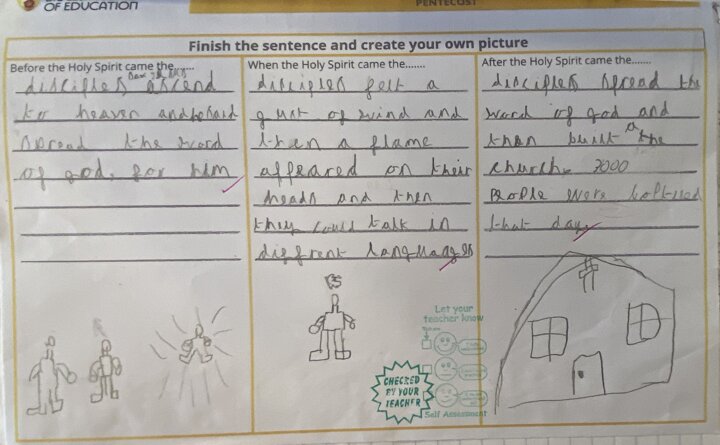 OF EDUCATION
PENTECOST
Finish the sentence and create your own picture
Before the Holy Spirit came the.......
disciples saw Jesus ascend
to heaven and he said
spread the word
of god, for him
When the Holy Spirit came the.......
disciples felt a
gust of wind and
then a flame
appeared on their
heads and then
they could talk in
diffrent langhanges
After the Holy Spirit came the.......
disciples spread the
word of god and
than built a the
church. 3000
people were
that day
Let your
teacher know
CHECKED
BY YOUR
TEACHER
Self Assessment